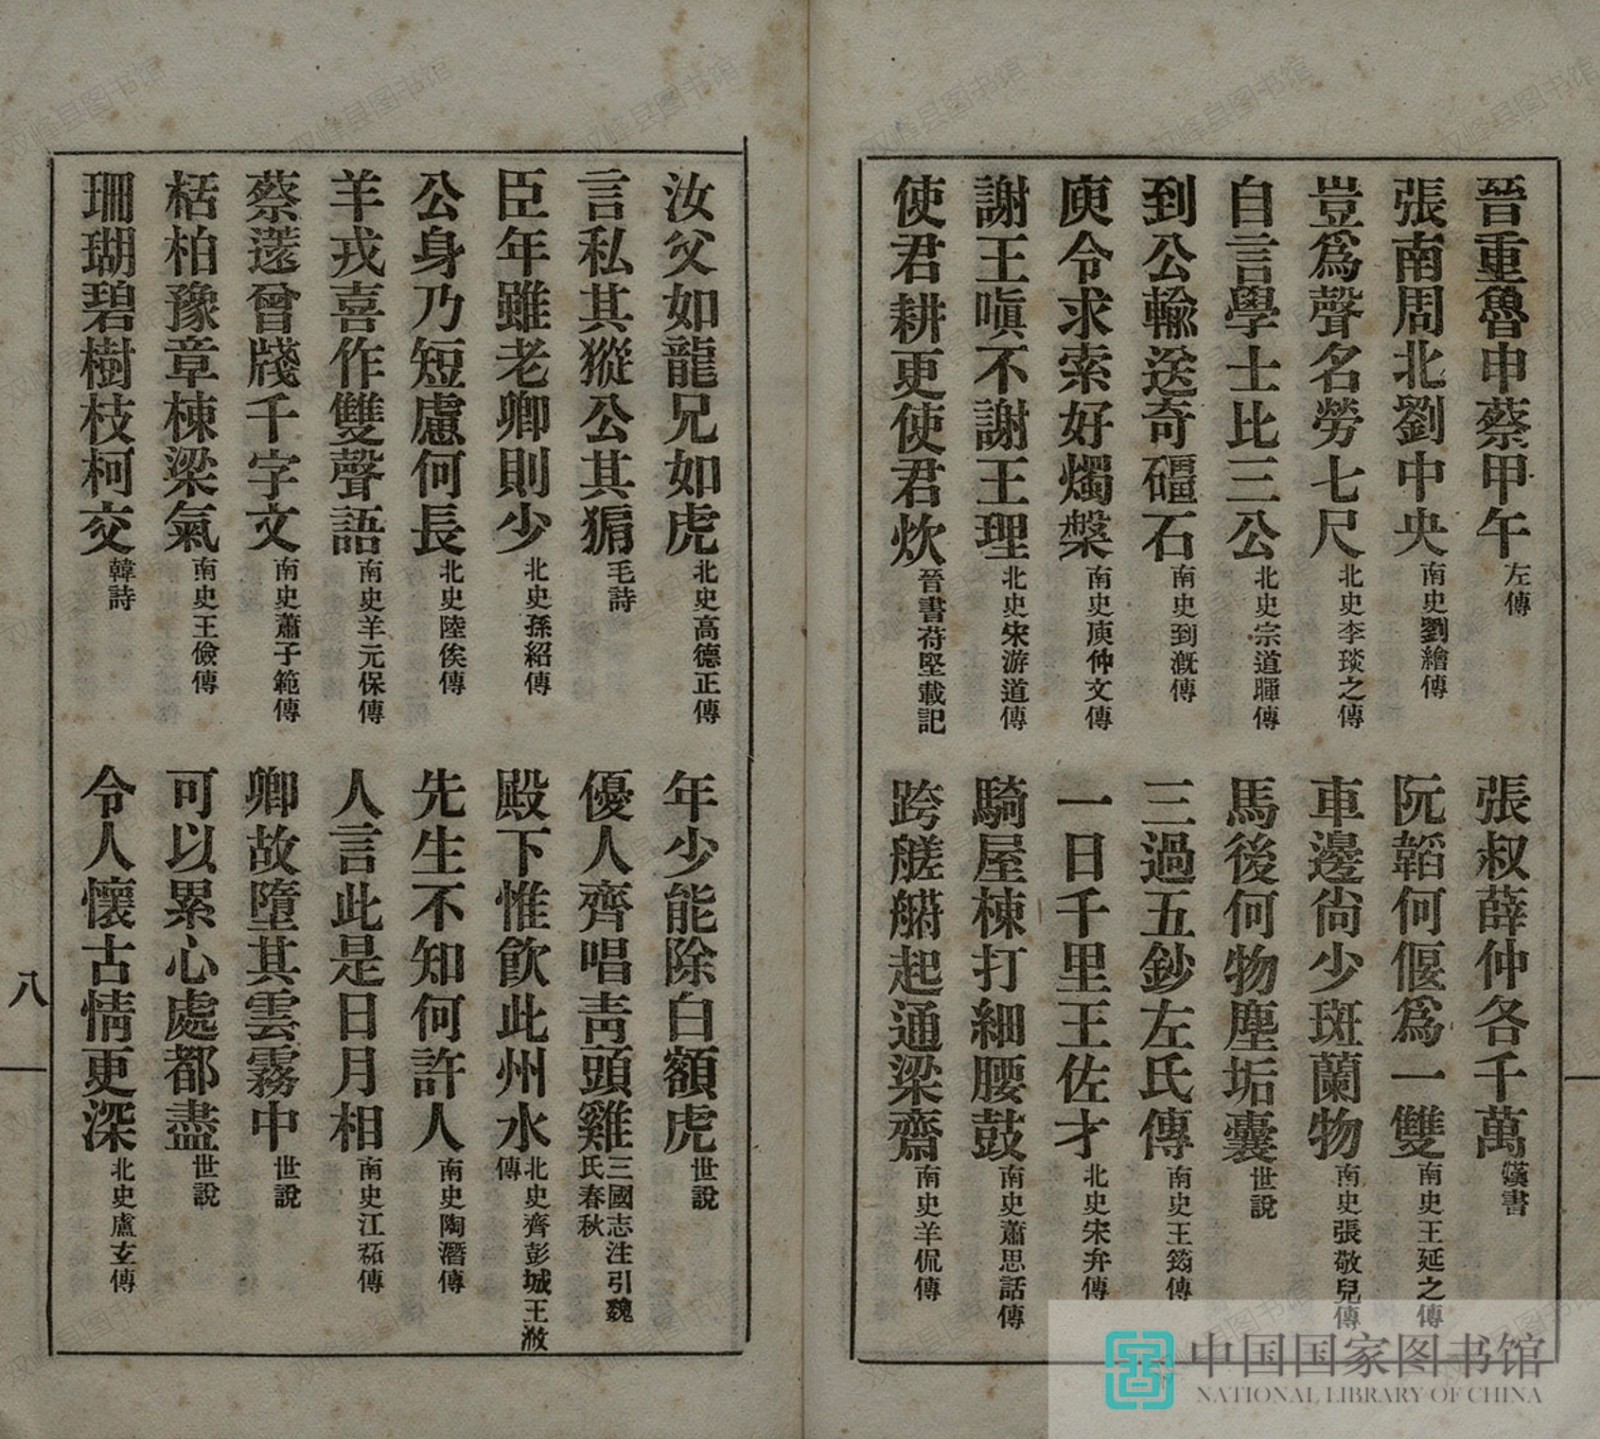 晉重魯申蔡甲午左傳
張叔薛仲各千萬漢書
張南周北劉中央南史劉繪傳
阮韜何偃爲一雙南史王延之傳
豈爲聲名勞七尺北史李琰之傳
車邊尙少斑蘭物南史張敬兒傳
自言學士比三公北史宗道暉傳
馬後何物塵垢囊世說
到公輸送奇礓石南史到漑傳
三過五鈔左氏傳南史王筠傳
庾令求索好燭槃南史庾仲文傳
一日千里王佐才北史宋弁傳
謝王嗔不謝王理北史宋游道傳
騎屋棟打細腰鼓南史蕭思話傳
使君耕更使君炊晉書苻堅載記
跨艖艒起通梁齋南史羊侃傳
汝父如龍兄如虎北史高德正傳
年少能除白額虎世說
言私其豵公其豜毛詩
優人齊唱靑頭雞三國志注引魏氏春秋
臣年雖老卿則少北史孫紹傳
殿下惟飮此州水北史齊彭城王浟傳
公身乃短慮何長北史陸俟傳
先生不知何許人南史陶潛傳
羊戎喜作雙聲語南史羊元保傳
人言此是日月相南史江祏傳
蔡薳曾牋千字文南史蕭子範傳
卿故墮其雲霧中世說
栝柏豫章棟梁氣南史王儉傳
可以累心處都盡世說
珊瑚碧樹枝柯交韓詩
令人懷古情更深北史盧玄傳
八
中国国家图书馆
NATIONAL LIBRARY OF CHINA
双峰县图书馆